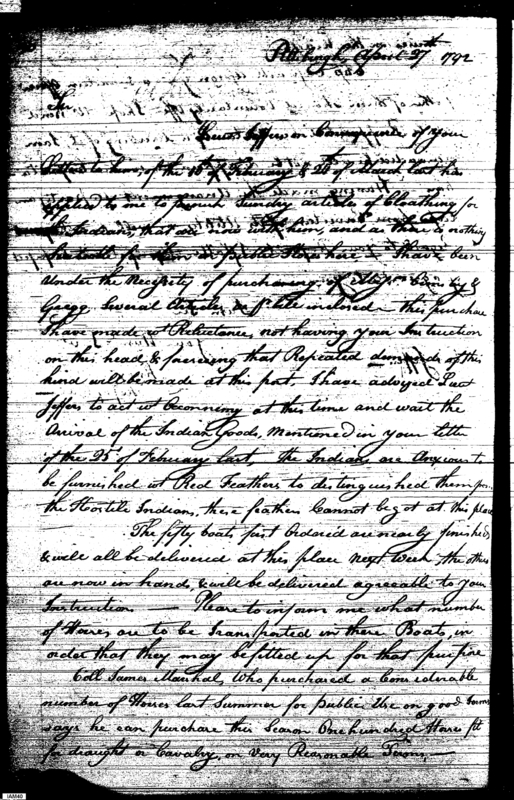 Pittsburgh, April 27th 1792
Sir
Lieut Jeffers in Consequence of your
Letters to him, of the 18th of February & 26th of March last has
applied to me to furnish Sundry articles of Cloathing for
the Indians, that are now with him, and as there is nothing
for them in public Stores here I have been
under the Necessity of purchasing of Mess
Gregg Several Articles as pr bill inclosed this purchase
I have made wt Reluctance, not having your Instruction
on this head, & foreseeing that Repeated demands of this
kind will be made at this post, I have advised Lieut
Jeffers to act wt Oeconomy at this time and wait the
Arrival of the Indian Goods, mentioned in your letter
of the 25 of February last, the Indians are Anxious to
be furnished wt Red Feathers to distinguished them from
the Hostile Indians, these feathers Cannot be got at this place
The fifty boats first Ordered are nearly finished
& will all be delivered at this place next Week the others
are now in hands, & will be delivered agreeable to your
Instructions — Please to inform me what number
of Horses are to be Transported in these Boats, in
order that they may be fitted up for that purpose
Coll James Marshal, who purchased a Considerable
number of Horses last Summer for public Use on good terms
says he can purchase this Season One hundred Horses fit
for draught or Cavalry, on Very Reasonable Terms,—
IAM40